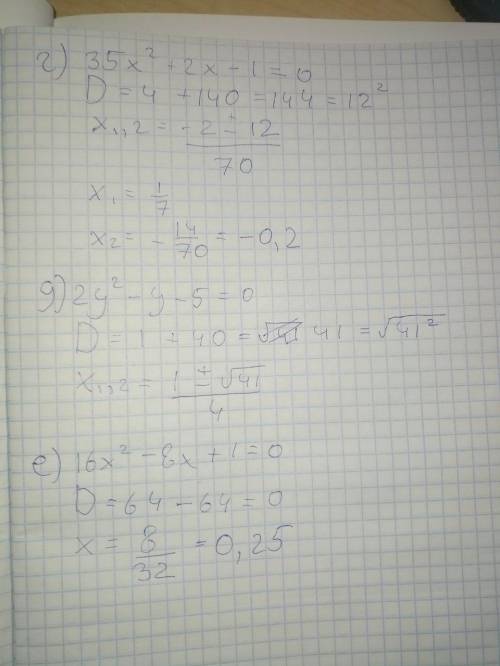 г) 35x² + 2x - 1 = 0
D = 4 + 140 = 144 = 12²
x₁,₂ = (-2 ± 12)/70
x₁ = 1/7
x₂ = -14/70 = -0,2
д) 2y² - y - 5 = 0
D = 1 + 40 = 41 = √41²
x₁,₂ = (1 ± √41)/4
е) 16x² - 8x + 1 = 0
D = 64 - 64 = 0
x = 8/32 = 0,25